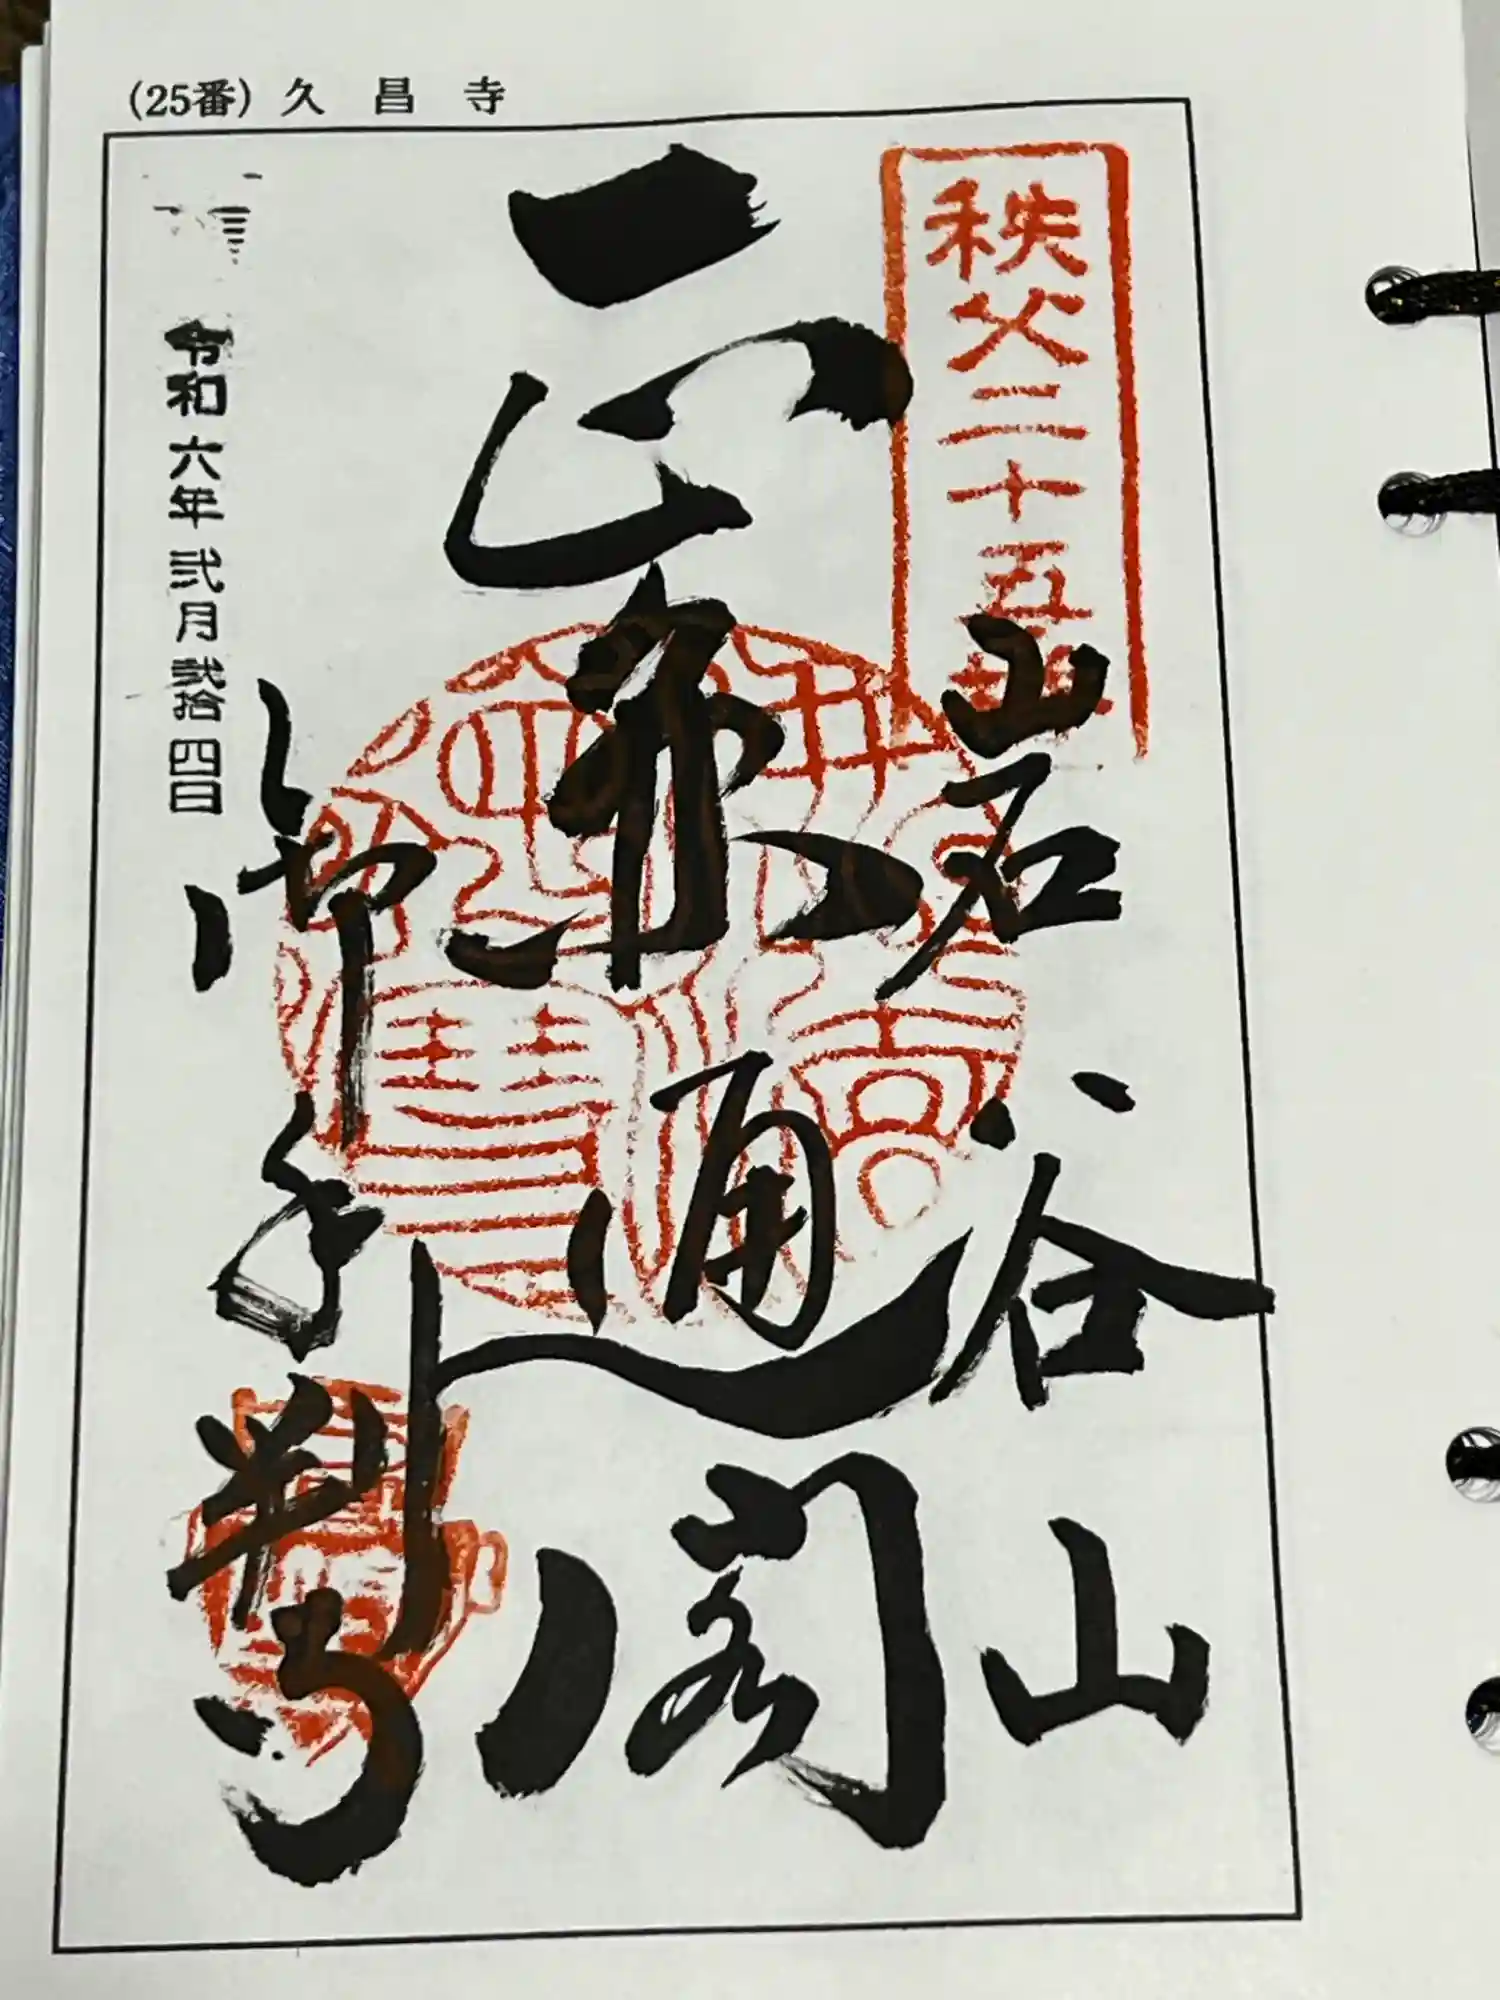 (25番) 久昌寺
秩父二十五番
岩谷山
通閣
令和六年弐月弐拾四日
御手判寺